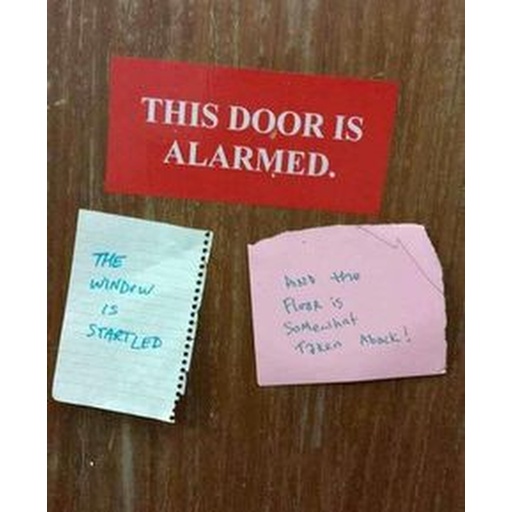 THIS DOOR IS
ALARMED.
THE
WINDOW
IS
STARTLED
AND the
Floor is
Somewhat
Taken Aback!